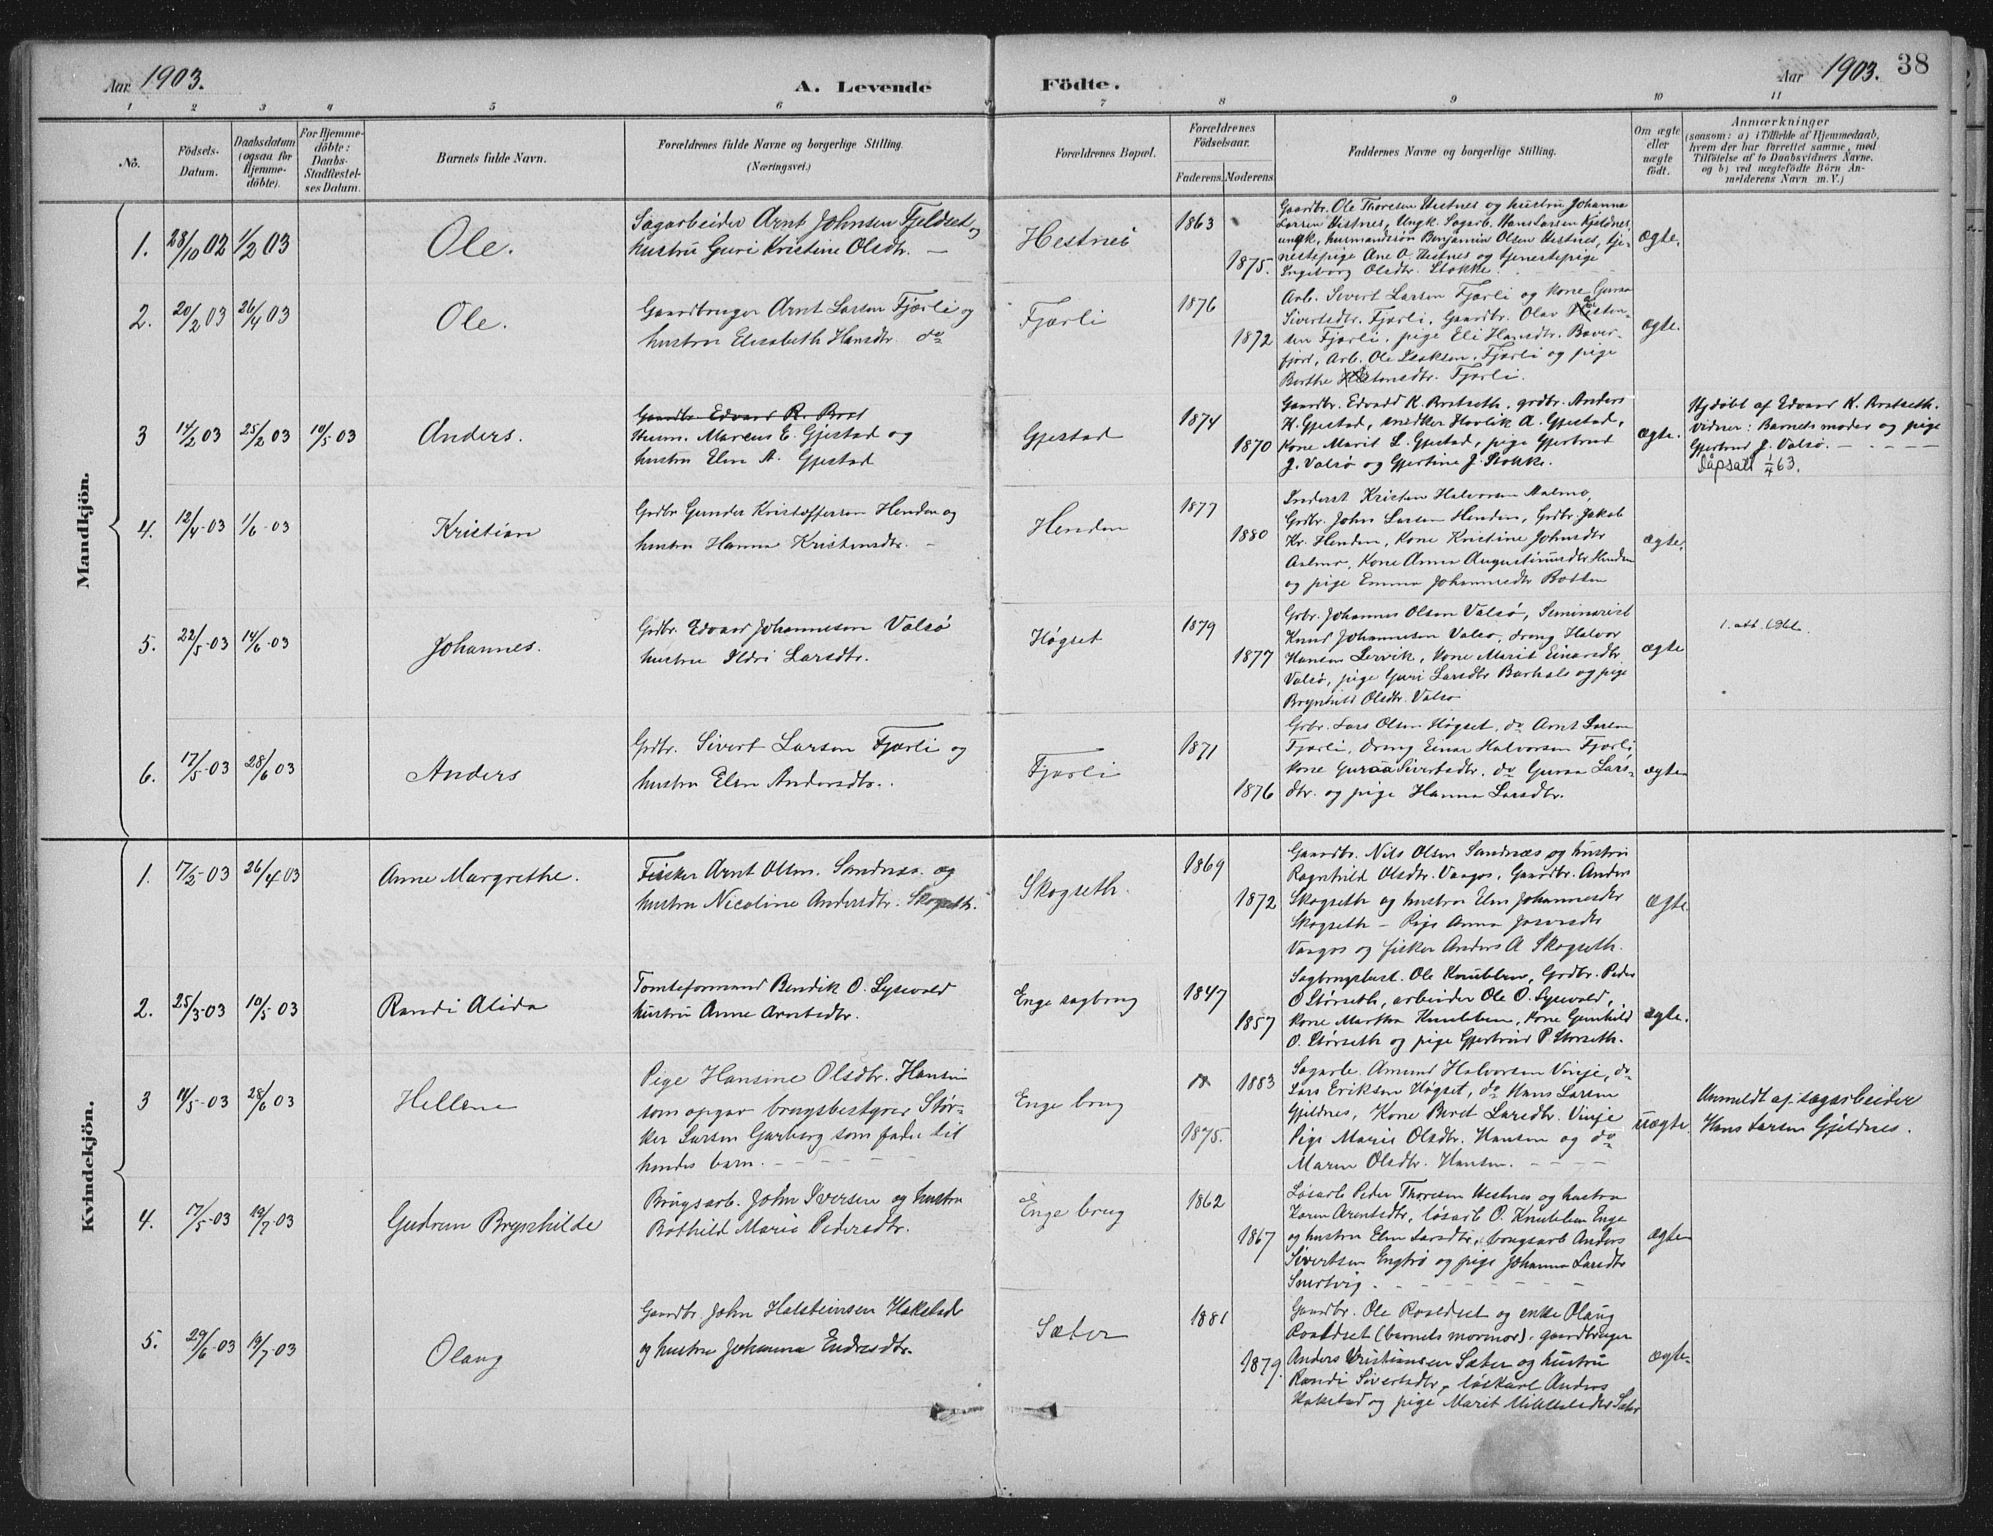 Aar 1903. A. Levende Födte. Aar 1903. 38
1 2 3 4 5 6 7 8 9 10 11
No.
Födsels-
Datum.
Daabsdatum
(ogsaa for
Hjemme-
döbte).
For Hjemme-
döbte:
Daabs-
Stadfæstel-
ses Datum.
Barnets fulde Navn.
Forældrenes fulde Navne og borgerlige Stilling.
(Næringsvei.)
Forældrenes Bopæl.
Forældrenes
Födselsaar.
Faderens. Moderens.
Faddernes Navne og borgerlige Stilling.
Om ægte
eller
uægte
födt.
Anmærkninger
(saasom: a) i Tilfælde af Hjemmedaab,
hvem der har forrettet samme, med
Tilföielse af to Daabsvidners Navne,
og b) ved uægtefödte Börn An-
melderens Navn m. V.)
Mandkjön.
1. 28/10 02 1/2 03 Ole.
Sagarbeider Arnt Johnsen Fjeldset og
hustru Guri Kristine Olsdtr. —
Hestnes
1863
1875.
Gaardbr. Ole Thoresen Hestnes og hustru Johanna
Larsen Hestnes, Ungk. Sagarb. Hans Larsen Gjeldnes,
ungk, husmandssön Benjamin Olsen Hestnes, tje-
nestepige Ane O. Hestnes og tjenestepige
Ingeborg Olsdtr. Stokke.
ægte.
2. 20/2 03 26/4 03 Ole.
Gaardbruger Arnt Larsen Fjærli og
hustru Elisabeth Hansdtr. do
Fjærli
1876
1872
Arb. Sivert Larsen Fjærli og kone Guraa
Sivertsdtr. Fjærli, Gaardbr. Olav
sen Fjærli, pige Eli Hansdtr. Bæver-
fjord, Arb. Ole Isaksen Fjærli og pige
Berthe Fjærli.
ægte.
3 14/2 03 25/2 03 10/5 03 Anders.
Gaardbr. Edvard K. Bret
Husm. Marcus E. Gjestad og
hustru Elen A. Gjestad
Gjestad
1874
1870
Gaardbr. Edvard K. Bratseth, grdbr. Anders
H. Gjestad, snedker Havlik A. Gjestad,
Kone Marit L. Gjestad, pige Gjertrud
J. Valsø og Gjertine J. Stokke.
ægte.
Hjdøbt af Edvard K. Bratseth.
vidner: Barnets moder og pige
Gjertrud J. Valsø. — - - -
Dåpsatt 1/4 63.
4. 12/4-03 1/6-03 Kristian
Grdbr Gunder Kristoffersen Henden og
hustru Hanna Kristensdtr. —
Henden
1877
1880
Inderst Kristen Halvorsen Aalmo,
Grdbr. John Larsen Henden, Grdbr. Jakob
Kr. Henden, Kone Kristine Johnsdtr
Aalmo, Kone Anna Augustinusdtr Henden
og pige Emma Johannesdtr Botten
ægte.
5. 22/5-03 14/6-03 Johannes.
Grdbr. Edvard Johannesen Valsø
hustru Ildri Larsdtr.
Høgset
1879
1877
Grbr. Johannes Olsen Valsø, Seminarist
Knud Johannesen Valsø, dreng Halvor
Hansen Lervik, Kone Marit Einarsdtr
Valsø, pige Guri Larsdtr Barhals og pige
Brynhild Olsdtr Valsø
ægte
6. 17/5-03 28/6 03 Anders
Grdbr. Sivert Larsen Fjærli og
hustru Elen Andersdtr.
Fjærli
1871
1876
Grbr. Lars Olsen Høgset, do Arnt Larsen
Fjærli, dreng Einar Halvorsen Fjærli
kone Guraa Sivertsdtr. do Guraa Lars-
dtr. og pige Hanna Larsdtr.
ægte
Kvindekjön.
1. 17/2-03 26/4 03 Anne Margrethe.
Fisker Arnt Olsen. Sandnæs. og
hustru Nicoline Andersdtr. Skogseth.
Skogseth.
1869
1872
Gaardbr. Nils Olsen Sandnæs og hustru
Ragnhild Olsdtr. Vaagos, Gaardbr. Anders
Skogseth og hustru Elen Johannesdtr
Skogseth — Pige Anna
Vaagos og fisker Anders A Skogseth.
ægte.
2. 25/3-03 10/5 03 Randi Alida
Tomteformand Bendik O. Lysevold
hustru Anne Arntsdtr.
Enge sagbrug
1847
1857
Sagbrugsbest. Ole Knubben, Grdbr. Peder
O Størseth, arbeider Ole O. Lysevold,
kone Martha Knubben, kone Gunhild
O. Størseth og pige Gjertrud P Størseth.
ægte.
3 11/5-03 28/6 03 Hellene
Pige Hansine Olsdtr. Hansen
som opgav brugsbestyrer Stør-
ker Larsen Garberg som fader til
hendes barn. - - - - -
Enge brug
1883
1875.
Sagarb. Amund Halvorsen Vinje, do
Lars Eriksen Høgset, do Hans Larsen
Gjeldnes, Kone Beret Larsdtr. Vinje
Pige Marie Olsdtr. Hansen og do
Maren Olsdtr. Hansen. - - - -
uægte.
Anmeldt af sagarbeider
Hans Larsen Gjeldnes.
4. 17/5-03 19/7-03 Gudrun Brynhilde
Brugsarb. John Iversen og hustru
Bothild Marie Pedersdtr.
Enge brug
1862
1867
Løsarb Peder Thoresen Hestnes og hustru
Karen Arentsdtr, løsarb O. Knubben Enge
og hustru Elen Larsdtr, brugsarb Anders
Sivertsen Engbø og pige Johanna Larsdtr
Snertvig. - - - - - - - -
ægte
5. 29/6-03 19/7-03 Olaug
Gaardbr. John Halsteinsen Hakstad
og hustru Johanna Endresdtr.
Sæter
1881
1879.
Gaardbr. Ole Roaldset og enke Olaug
Roaldset (barnets mormor). gaardbruger
Anders Kristiansen Sæter og hustru
Randi Sivertsdtr, løskarl Anders
Hakstad og pige Marit Mikkelsdtr Sæter
ægte